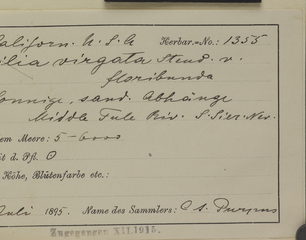 Californ. U. S. A Herbar.-No.: 1355
ilia virgata Steud. v.
floribunda
onnige, sand. Abhänge
Middle Tule Riv. S. Sier. Nev.
em Meere: 5-6000
it d. Pfl. O
Höhe, Blütenfarbe etc.:
Juli 1895. Name des Sammlers: C A. Purpus
Zugegangen XII.1915.